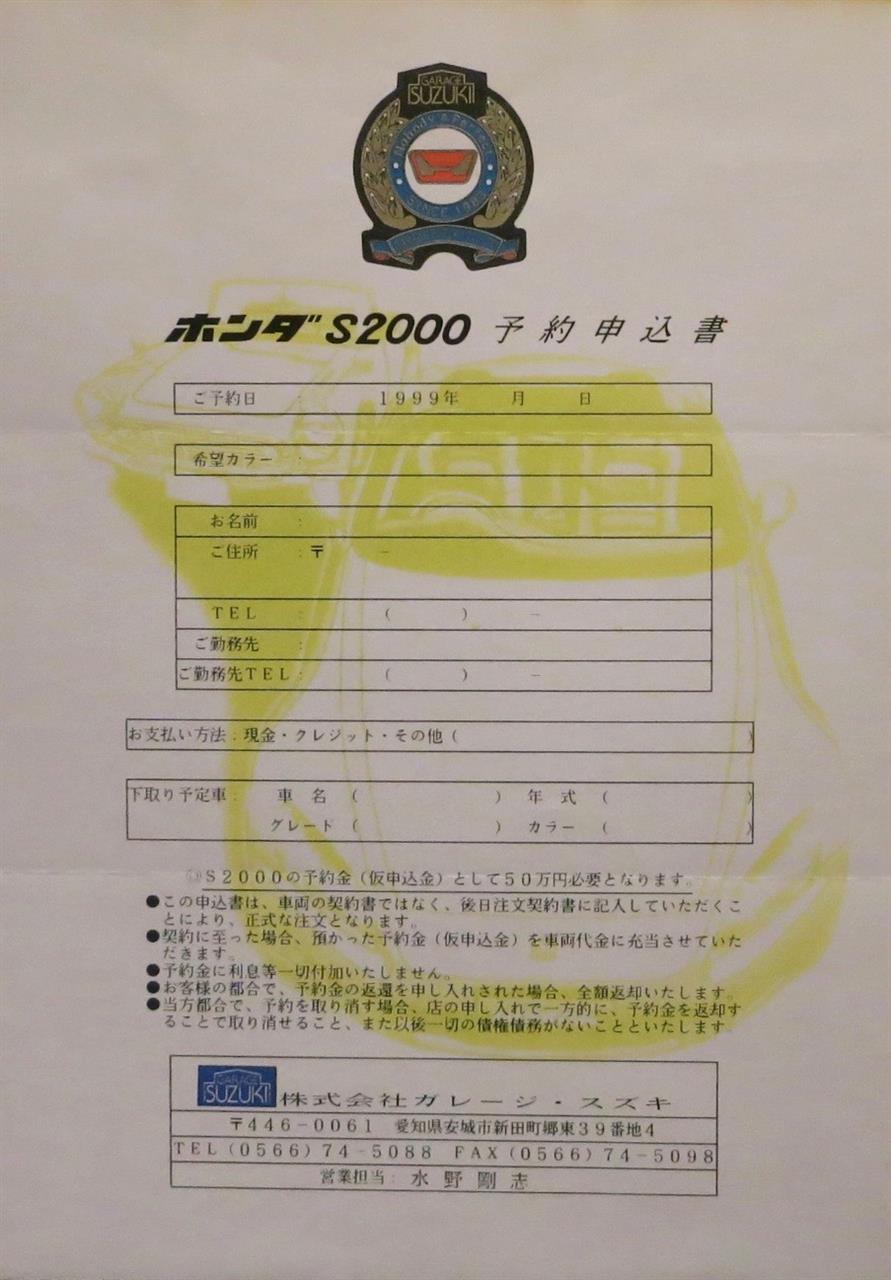 GARAGE
SUZUKI
Nobody's Perfect
SINCE 1983
ホンダ S2000 予約申込書
ご予約日 : 1999年 月 日
希望カラー :
お名前 :
ご住所 : 〒 −
TEL : ( ) −
ご勤務先 :
ご勤務先TEL : ( ) −
お支払い方法 : 現金・クレジット・その他 ( )
下取り予定車 : 車 名 ( ) 年 式 ( )
グレード ( ) カラー ( )
◎S2000の予約金(仮申込金)として50万円必要となります。
●この申込書は、車両の契約書ではなく、後日注文契約書に記入していただくこ
とにより、正式な注文となります。
●契約に至った場合、預かった予約金(仮申込金)を車両代金に充当させていた
だきます。
●予約金に利息等一切付加いたしません。
●お客様の都合で、予約金の返還を申し入れされた場合、全額返却いたします。
●当方都合で、予約を取り消す場合、店の申し入れで一方的に、予約金を返却す
ることで取り消せること、また以後一切の債権債務がないことといたします。
GARAGE
SUZUKI 株式会社ガレージ・スズキ
〒446−0061 愛知県安城市新田町郷東39番地4
TEL(0566)74−5088 FAX(0566)74−5098
営業担当: 水野剛志